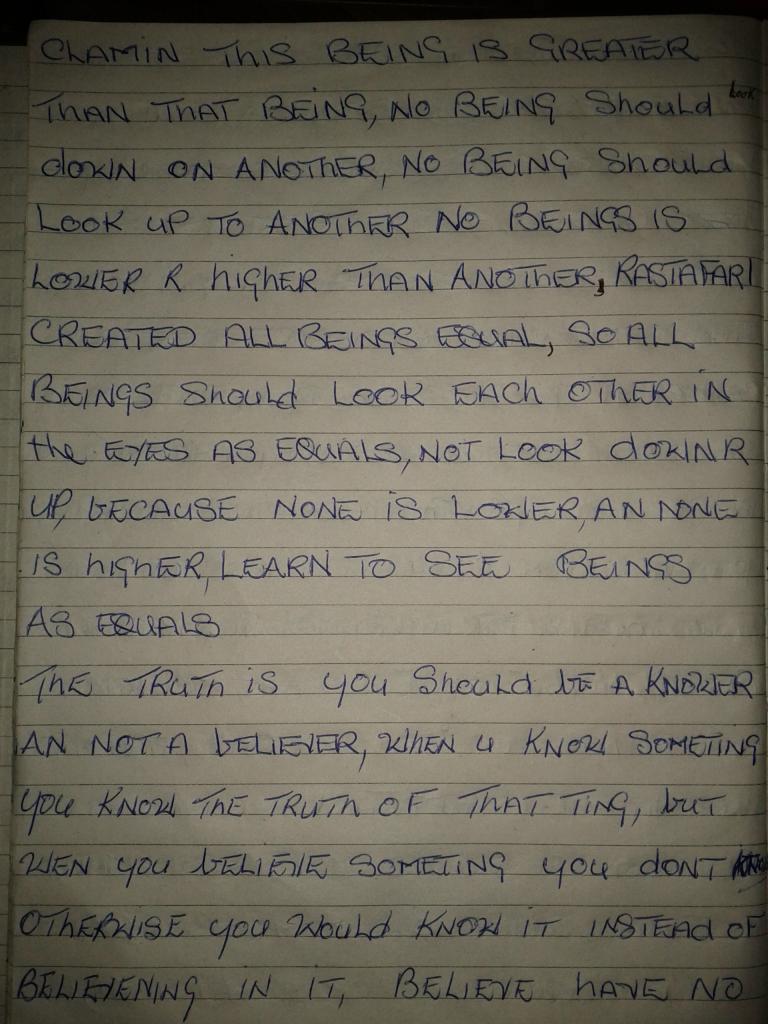 CLAMIN THIS BEING IS GREATER
THAN THAT BEING, NO BEING Should Look
down ON ANOTHER, NO BEING Should
LOOK UP TO ANOTHER NO BEINGS IS
LOWER R higher THAN ANOTHER, RASTAFARI
CREATED ALL BEINGS EQUAL, SO ALL
BEINGS Should LOOK EACH OTHER IN
the EYES AS EQUALS, NOT LOOK dOWN R
UP, bECAUSE NONE IS LOWER, AN NONE
IS highER, LEARN TO SEE BEINGS
AS EQUALS
THE TRUTH IS YOU Should bE A KNOWER
AN NOT A bELIEVER, WHEN U KNOW SOMETING
YOU KNOW THE TRUTH OF THAT TING, bUT
WEN YOU bELIEVE SOMETING YOU dONT KNOW
OTHERWISE YOU WOULD KNOW IT INSTEAD OF
BELIEVENING IN IT, BELIEVE HAVE NO